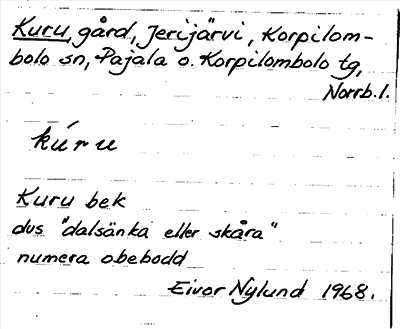 Kuru, gård, Jerijärvi, Korpilom-
bolo sn, Pajala o. Korpilombolo tg,
Norrb. l.
kúru
Kuru bek
dvs "dalsänka eller skåra"
numera obebodd
Eivor Nylund 1968.